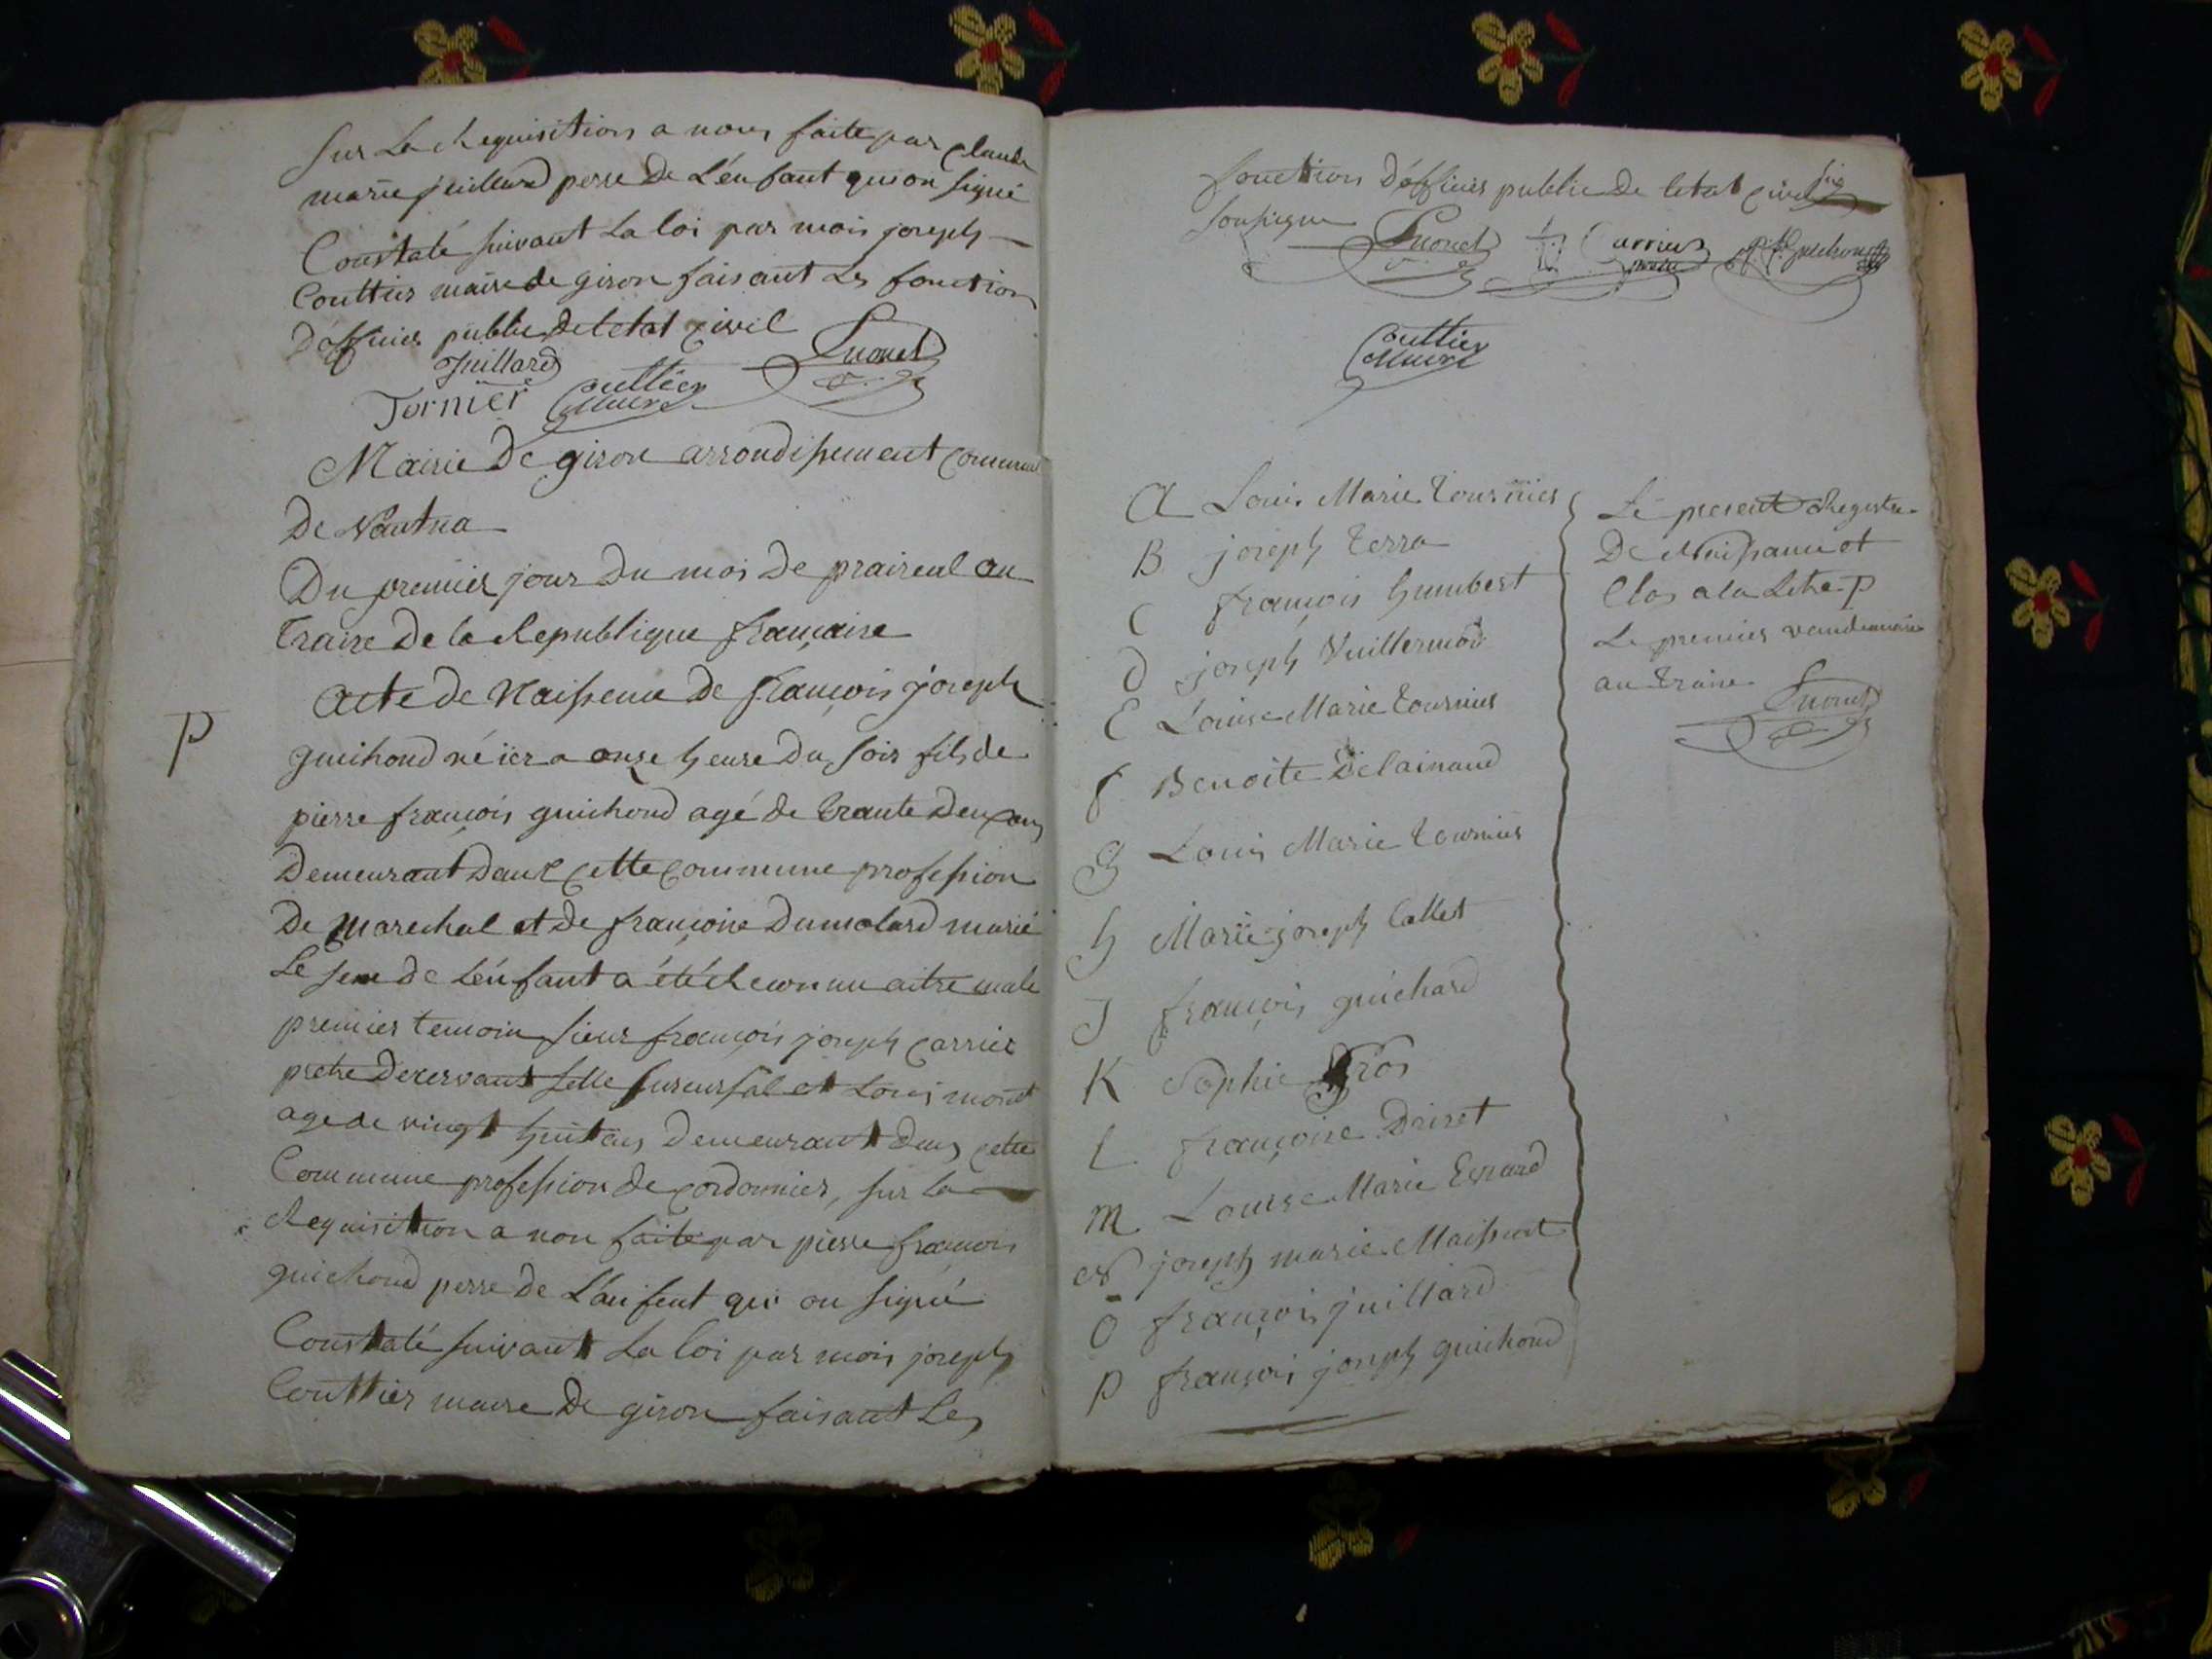 Sur La Requisition a nous faite par Claude
marie juillard perre de L'enfant qui on signé
Constaté suivant La loi par mois joseph
Couttier maire de giron faisant Les fonction
D'officier public de letat Civil
Juillard
Tornier Couttier Maire
Mairie De giron arrondissement Communal
De Nantua
Du premier jour Du mois De praireal an
Traize De la Republique francaise
Acte de Naissence De francois joseph
P
guichond né ier a onze heure Du soir fils de
pierre francois guichond agé de trante Deux ans
Demeurant Dans Cette Commune profession
De Marechal et de francoise Dumolard marié
Le sexe de L'enfant a été Reconnu aitre male
premier temoin sieur francois joseph Carrier
pretre Decervant selle surcursal et Louis monet
age de vingt huit ans Demeurant Dans Cette
Commune profession de Cordonnier, sur la
Requisition a nou faite par pierre francois
guichond perre de L'anfent qui on signé
Constaté suivant La loi par mois joseph
Couttier maire De giron faisant Les
fonction D'officier public De letat Civil
sousigne Carrier
Couttier
Maire
A Louis Marie Tournier
B joseph Terra
C francois humbert
D joseph Vuillermod
E Louise Marie Tournier
F Benoite Delainaud
G Louis Marie Tournier
H Marie joseph Callet
J francois guichard
K Sophie Gros
L francoise Driret
M Louise Marie Evrard
N joseph marie Maissiat
O francois juillard
P francois joseph guichond
Le present Registre
De Naissance et
Clos a la Letre P
Le premier vandemaire
an Traize